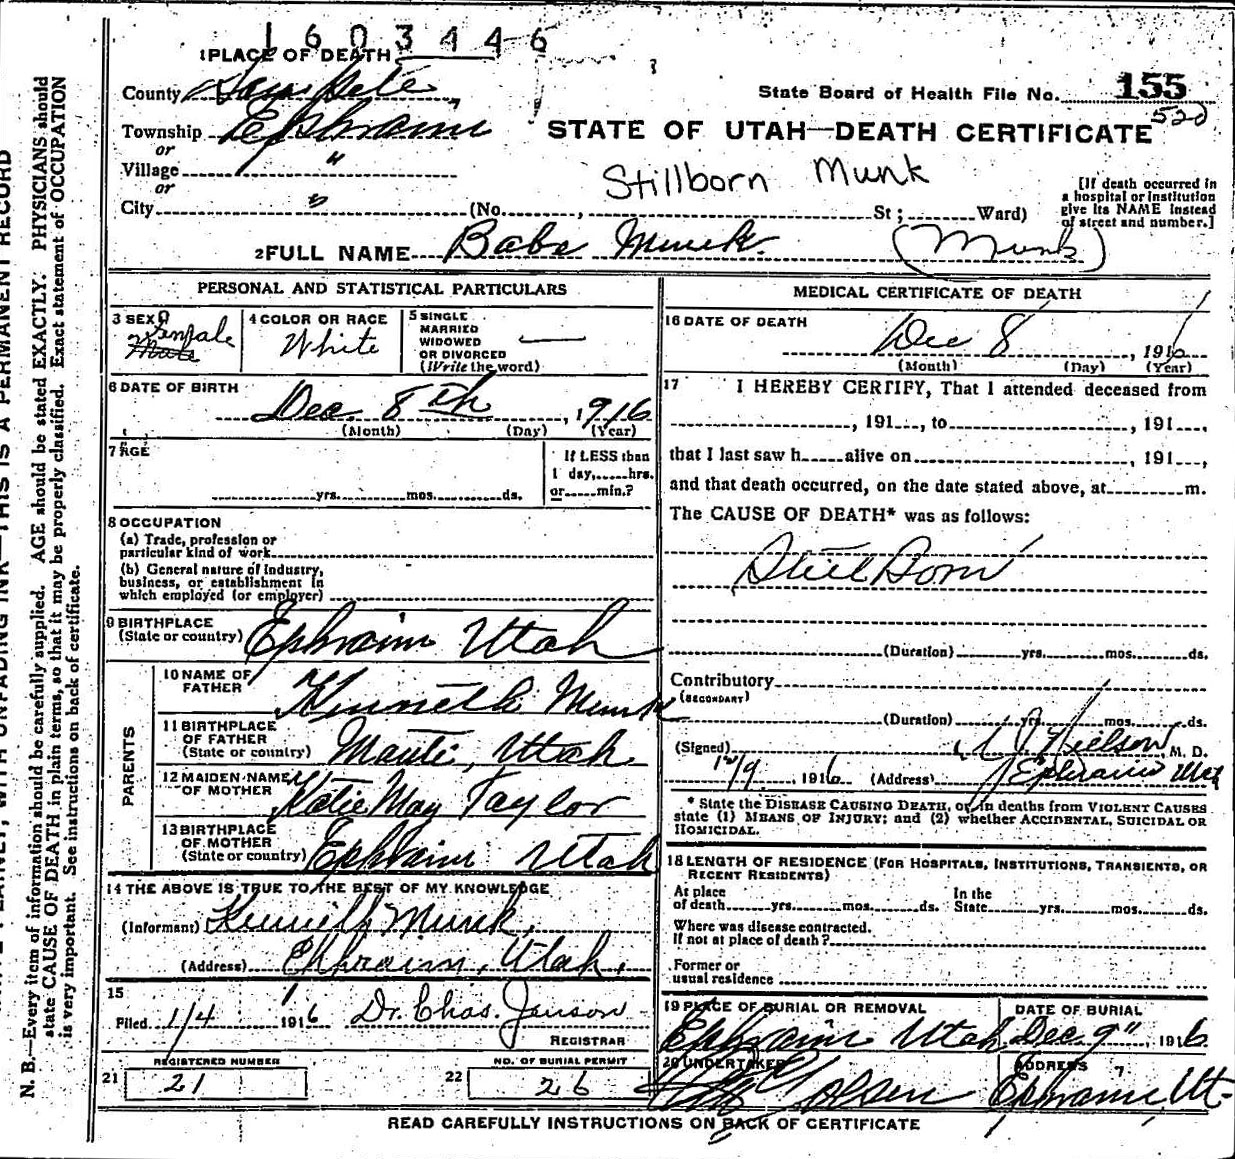 1603446
1 PLACE OF DEATH
County San Pete
State Board of Health File No. 155
520
Township Ephraim
STATE OF UTAH—DEATH CERTIFICATE
or
Village "
or
Stillborn Munk
City " (No. , St; Ward)
[If death occurred in
a hospital or institution
give its NAME instead
of street and number.]
2 FULL NAME Babe Munk. (Munk)
PERSONAL AND STATISTICAL PARTICULARS
3 SEX Female
Male
4 COLOR OR RACE
White
5 SINGLE
MARRIED
WIDOWED
OR DIVORCED
(Write the word)
6 DATE OF BIRTH
Dec. 8th, 1916
(Month) (Day) (Year)
7 AGE
yrs. mos. ds.
If LESS than
1 day, hrs.
or min.?
8 OCCUPATION
(a) Trade, profession or
particular kind of work
(b) General nature of industry,
business, or establishment in
which employed (or employer)
9 BIRTHPLACE
(State or country) Ephraim Utah
PARENTS
10 NAME OF
FATHER Kenneth Munk
11 BIRTHPLACE
OF FATHER
(State or country) Manti, Utah
12 MAIDEN NAME
OF MOTHER Katie May Taylor
13 BIRTHPLACE
OF MOTHER
(State or country) Ephraim Utah
14 THE ABOVE IS TRUE TO THE BEST OF MY KNOWLEDGE
(Informant) Kenneth Munk,
(Address) Ephraim, Utah.
15
Filed 1/4 1916 Dr. Chas. Jenson
REGISTRAR
REGISTERED NUMBER
21 21
NO. OF BURIAL PERMIT
22 26
MEDICAL CERTIFICATE OF DEATH
16 DATE OF DEATH
Dec 8, 1916
(Month) (Day) (Year)
17 I HEREBY CERTIFY, That I attended deceased from
, 191 , to , 191 ,
that I last saw h alive on , 191 ,
and that death occurred, on the date stated above, at m.
The CAUSE OF DEATH* was as follows:
Still Born
(Duration) yrs. mos. ds.
Contributory
(SECONDARY)
(Duration) yrs. mos. ds.
(Signed) Nielson, M. D.
12/9, 1916 (Address) Ephraim Utah
* State the DISEASE CAUSING DEATH, or, in deaths from VIOLENT CAUSES
state (1) MEANS OF INJURY; and (2) whether ACCIDENTAL, SUICIDAL OR
HOMICIDAL.
18 LENGTH OF RESIDENCE (FOR HOSPITALS, INSTITUTIONS, TRANSIENTS, OR
RECENT RESIDENTS)
At place
of death yrs. mos. ds.
In the
State yrs. mos. ds.
Where was disease contracted.
If not at place of death?
Former or
usual residence
19 PLACE OF BURIAL OR REMOVAL
Ephraim Utah
DATE OF BURIAL
Dec. 9" 1916
20 UNDERTAKER
Olsen
ADDRESS
Ephraim, Ut-
READ CAREFULLY INSTRUCTIONS ON BACK OF CERTIFICATE
N. B.—Every item of information should be carefully supplied. AGE should be stated EXACTLY. PHYSICIANS should
state CAUSE OF DEATH in plain terms, so that it may be properly classified. Exact statement of OCCUPATION
is very important. See instructions on back of certificate.
WITH UNFADING INK—THIS IS A PERMANENT RECORD